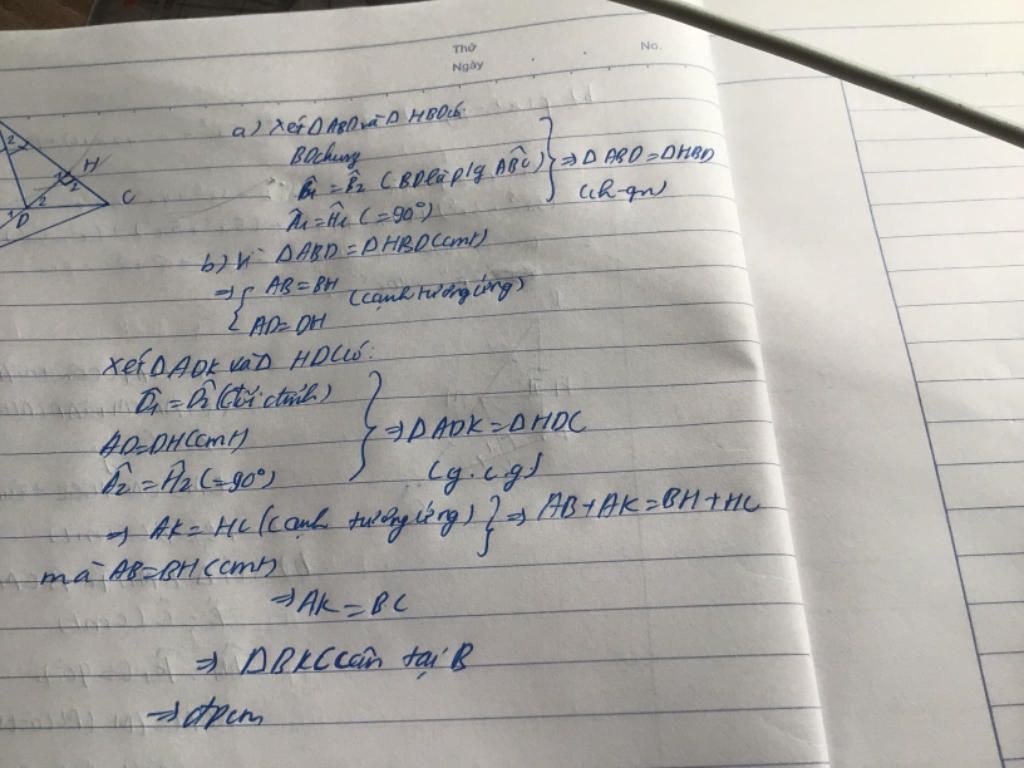 Thứ
Ngày
No.
2
H
2
C
1
D
2
a) Xét Δ ABD và Δ HBD có:
BD chung
B̂₁ = B̂₂ (BD là p/g AB̂C)
Â₁ = Ĥ₁ (= 90°)
⇒ Δ ABD = Δ HBD
(ch-gn)
b) Vì ΔABD = ΔHBD (cmt)
⇒ { AB = BH
AD = DH
(cạnh tương ứng)
Xét Δ ADK và Δ HDC có:
D̂₁ = D̂₂ (đối đỉnh)
AD = DH (cmt)
Â₂ = Ĥ₂ (= 90°)
⇒ Δ ADK = Δ HDC
(g.c.g)
⇒ AK = HC (cạnh tương ứng)
mà AB = BH (cmt)
⇒ AB + AK = BH + HC
⇒ AK = BC
⇒ Δ BKC cân tại B
⇒ đpcm